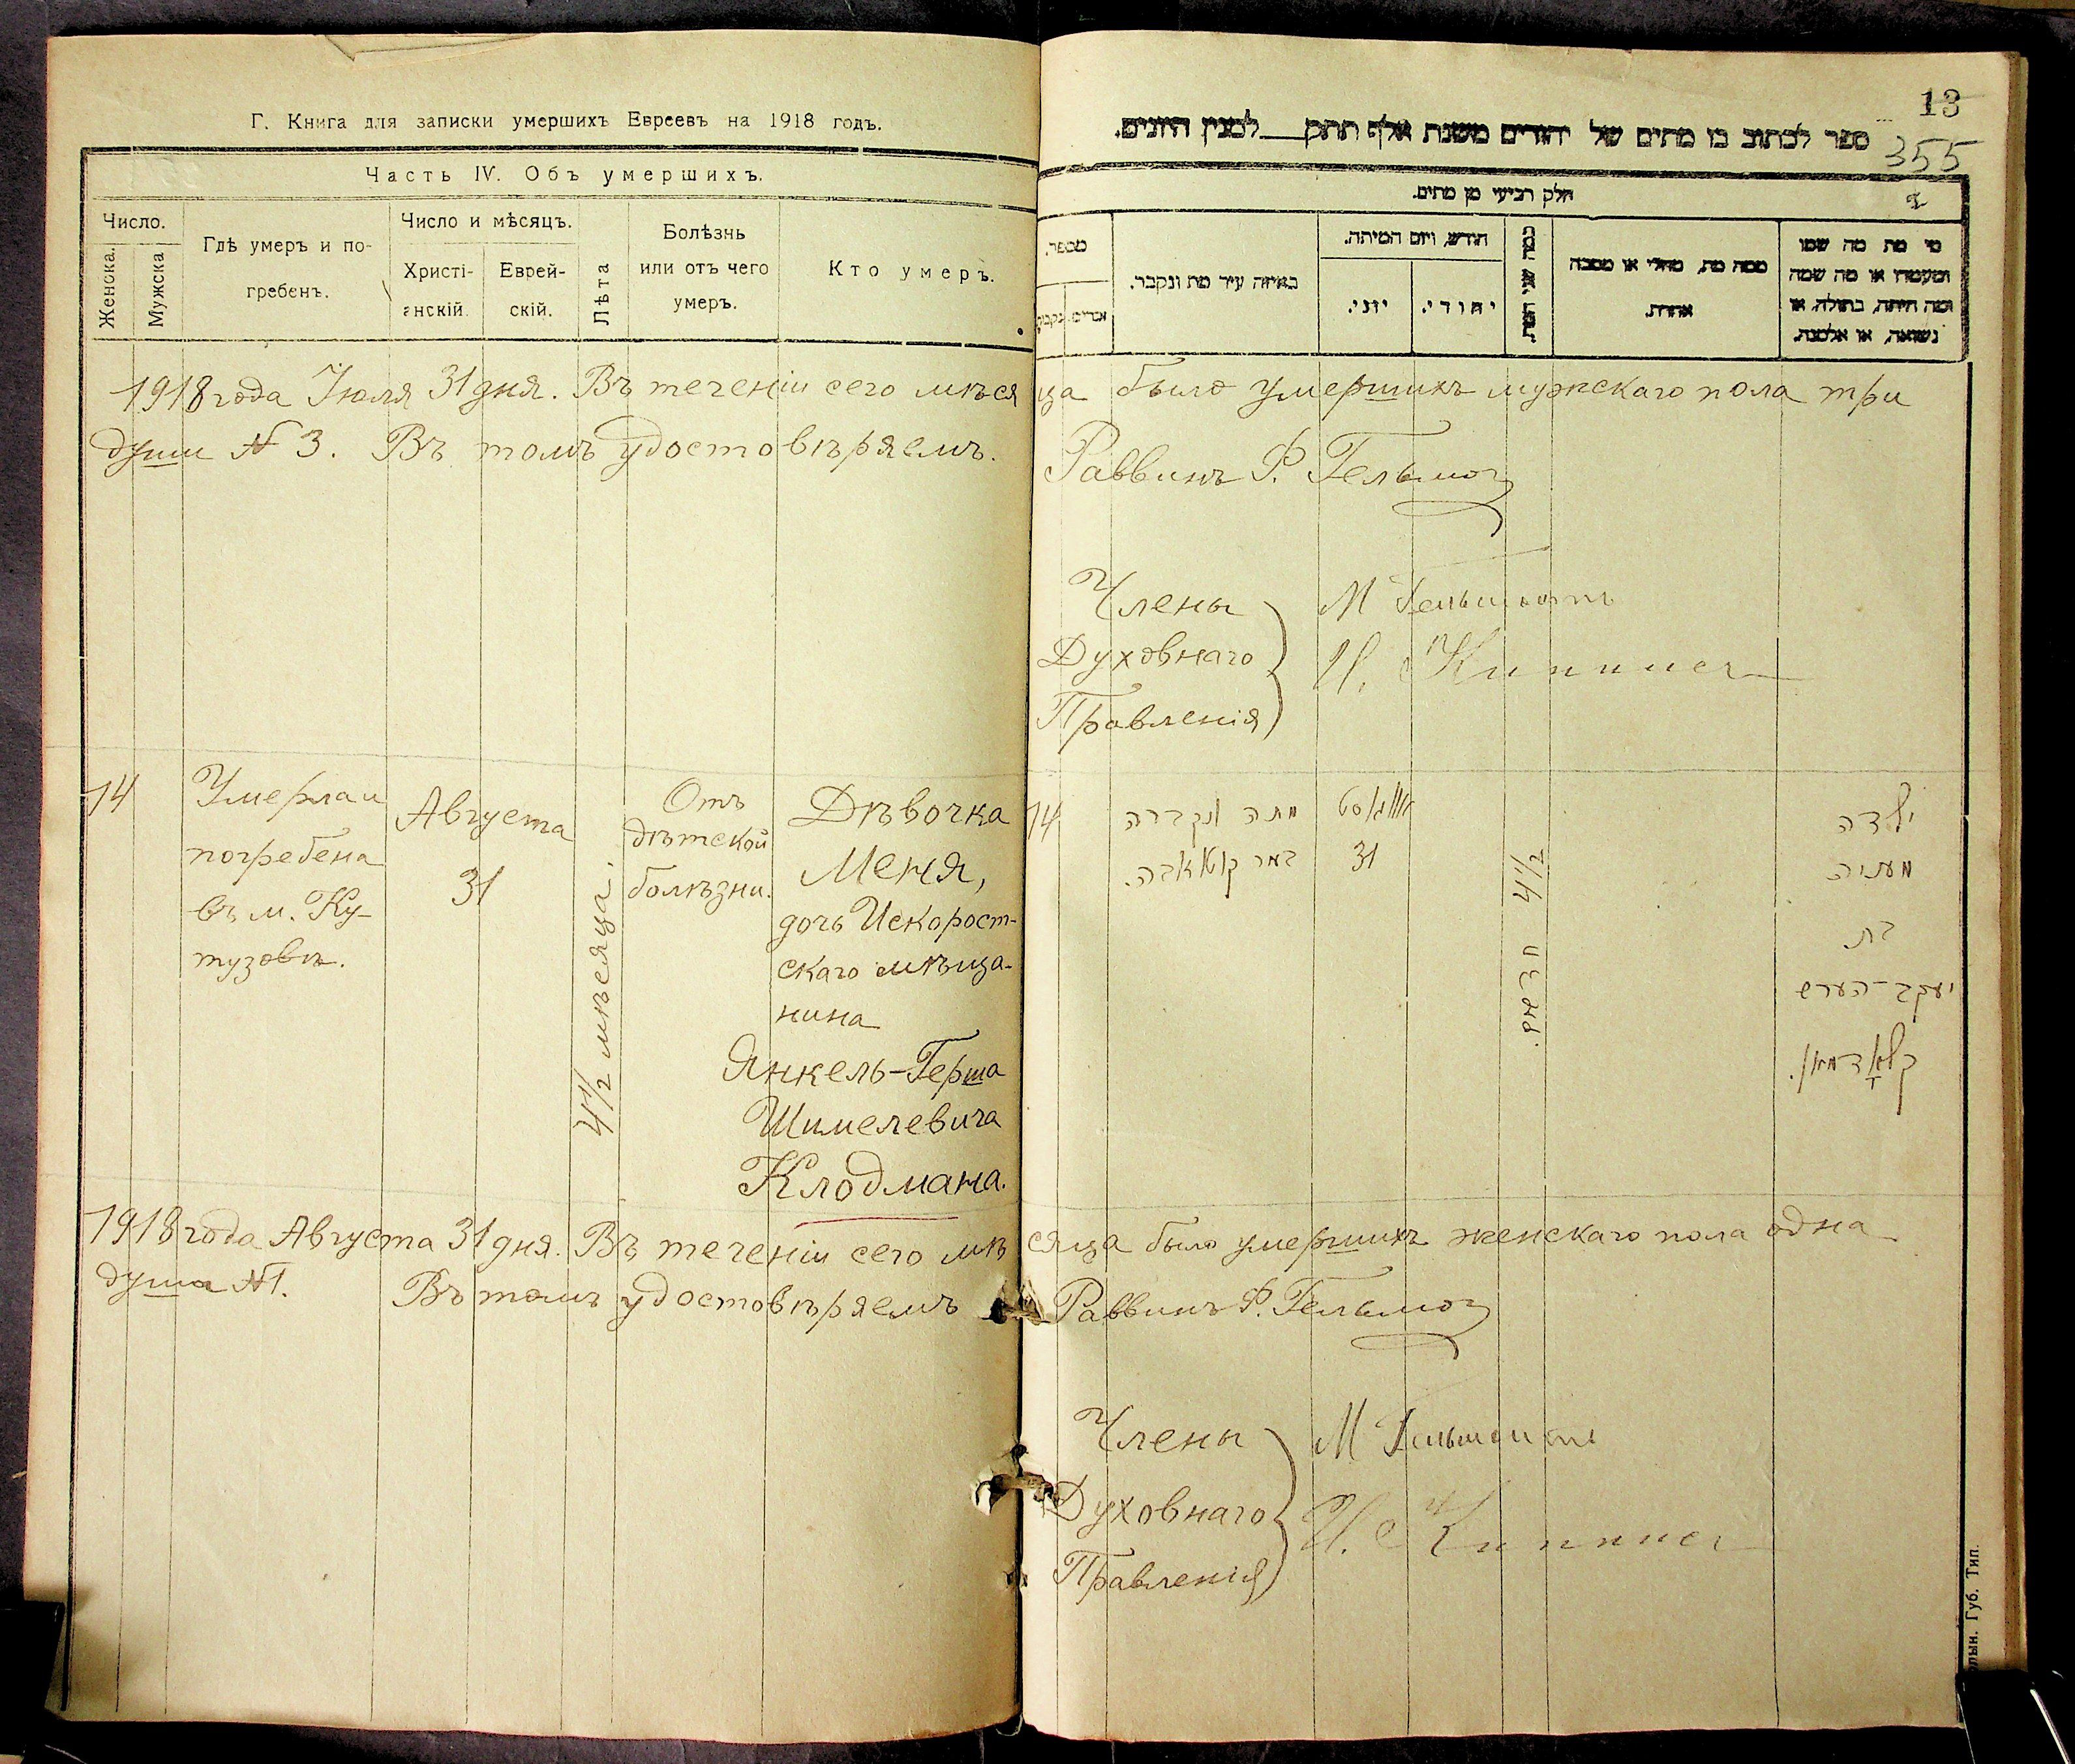 Г. Книга для записки умершихъ Евреевъ на 1918 годъ.
Часть IV. Объ умершихъ.
Число.
Женска.
Мужска
Гдѣ умеръ и по-
гребенъ.
Число и мѣсяцъ.
Христі-
анскій.
Еврей-
скій.
Лѣта
Болѣзнь
или отъ чего
умеръ.
Кто умеръ.
13
355
ספר לכתוב בו מתים של יהודים משנת אלף תתק___למנין היונים.
חלק רביעי מן מתים.
מספר.
נקבות
זכרים.
באיזה עיר מת ונקבר.
חודש, ויום המיתה.
יוני.
יהודי.
כמה שני המת.
ממה מת, מחלי או מסבה
אחרת.
מי מת מה שמו
ומעמדו או מה שמה
ומה היתה, בתולה, או
נשואה, או אלמנה.
1918 года Іюля 31 дня. Въ теченіи сего мѣся
ца было умершихъ мужскаго пола три
души № 3. Въ томъ удостовѣряемъ.
Раввинъ Ф. Гельмо
Члены
Духовнаго
Правленія
М
И. Кипнис
14
Умерла и
погребена
въ м. Ку-
тузовѣ.
Августа
31
4 1/2 мѣсяца.
Отъ
дѣтской
болѣзни.
Дѣвочка
Меня,
дочь Искорост-
скаго мѣща-
нина
Янкель-Герша
Шимелевича
Клодмана.
14
מתה ונקברה
אווגוסט
31
4 1/2 חדשים.
ילדה
מעניה
בת
יעקב-הערש
קלאָדמאן.
1918 года Августа 31 дня. Въ теченіи сего мѣ
сяца было умершихъ женскаго пола одна
душа №1. Въ томъ удостовѣряемъ
Раввинъ Ф. Гельмо
Члены
Духовнаго
Правленія
М
И. Кипнис
Губ. Тип.